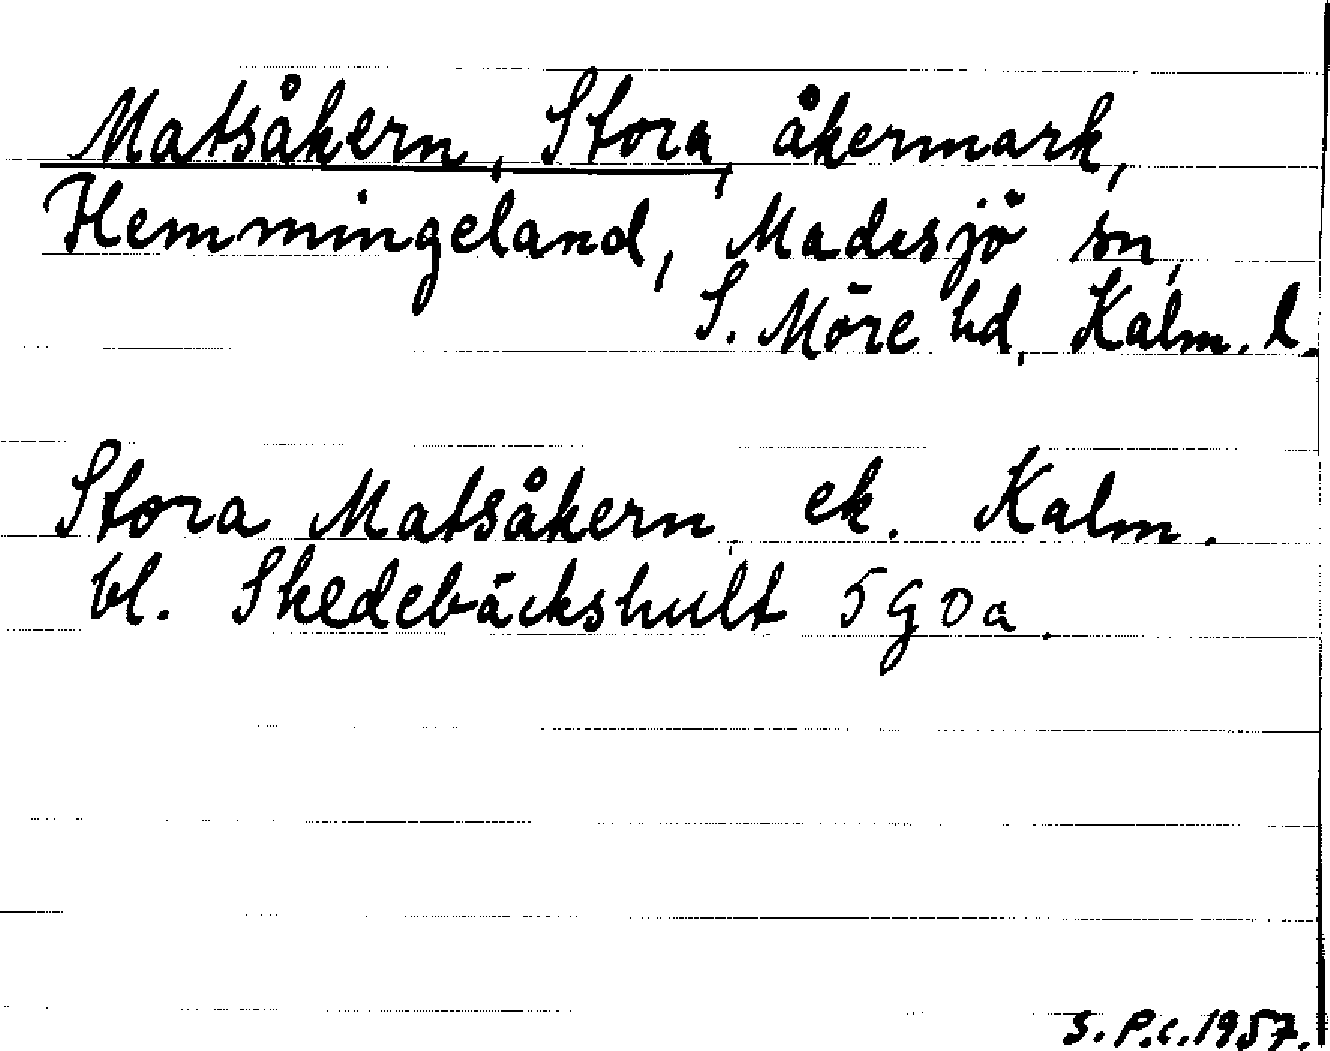 Matsåkern, Stora, åkermark,
Hemmingeland, Madesjö sn,
S. Möre hd, Kalm. l.
Stora Matsåkern, ek. Kalm.
bl. Skedebäckshult 5 g 0 a.
S.P.C. 1957.